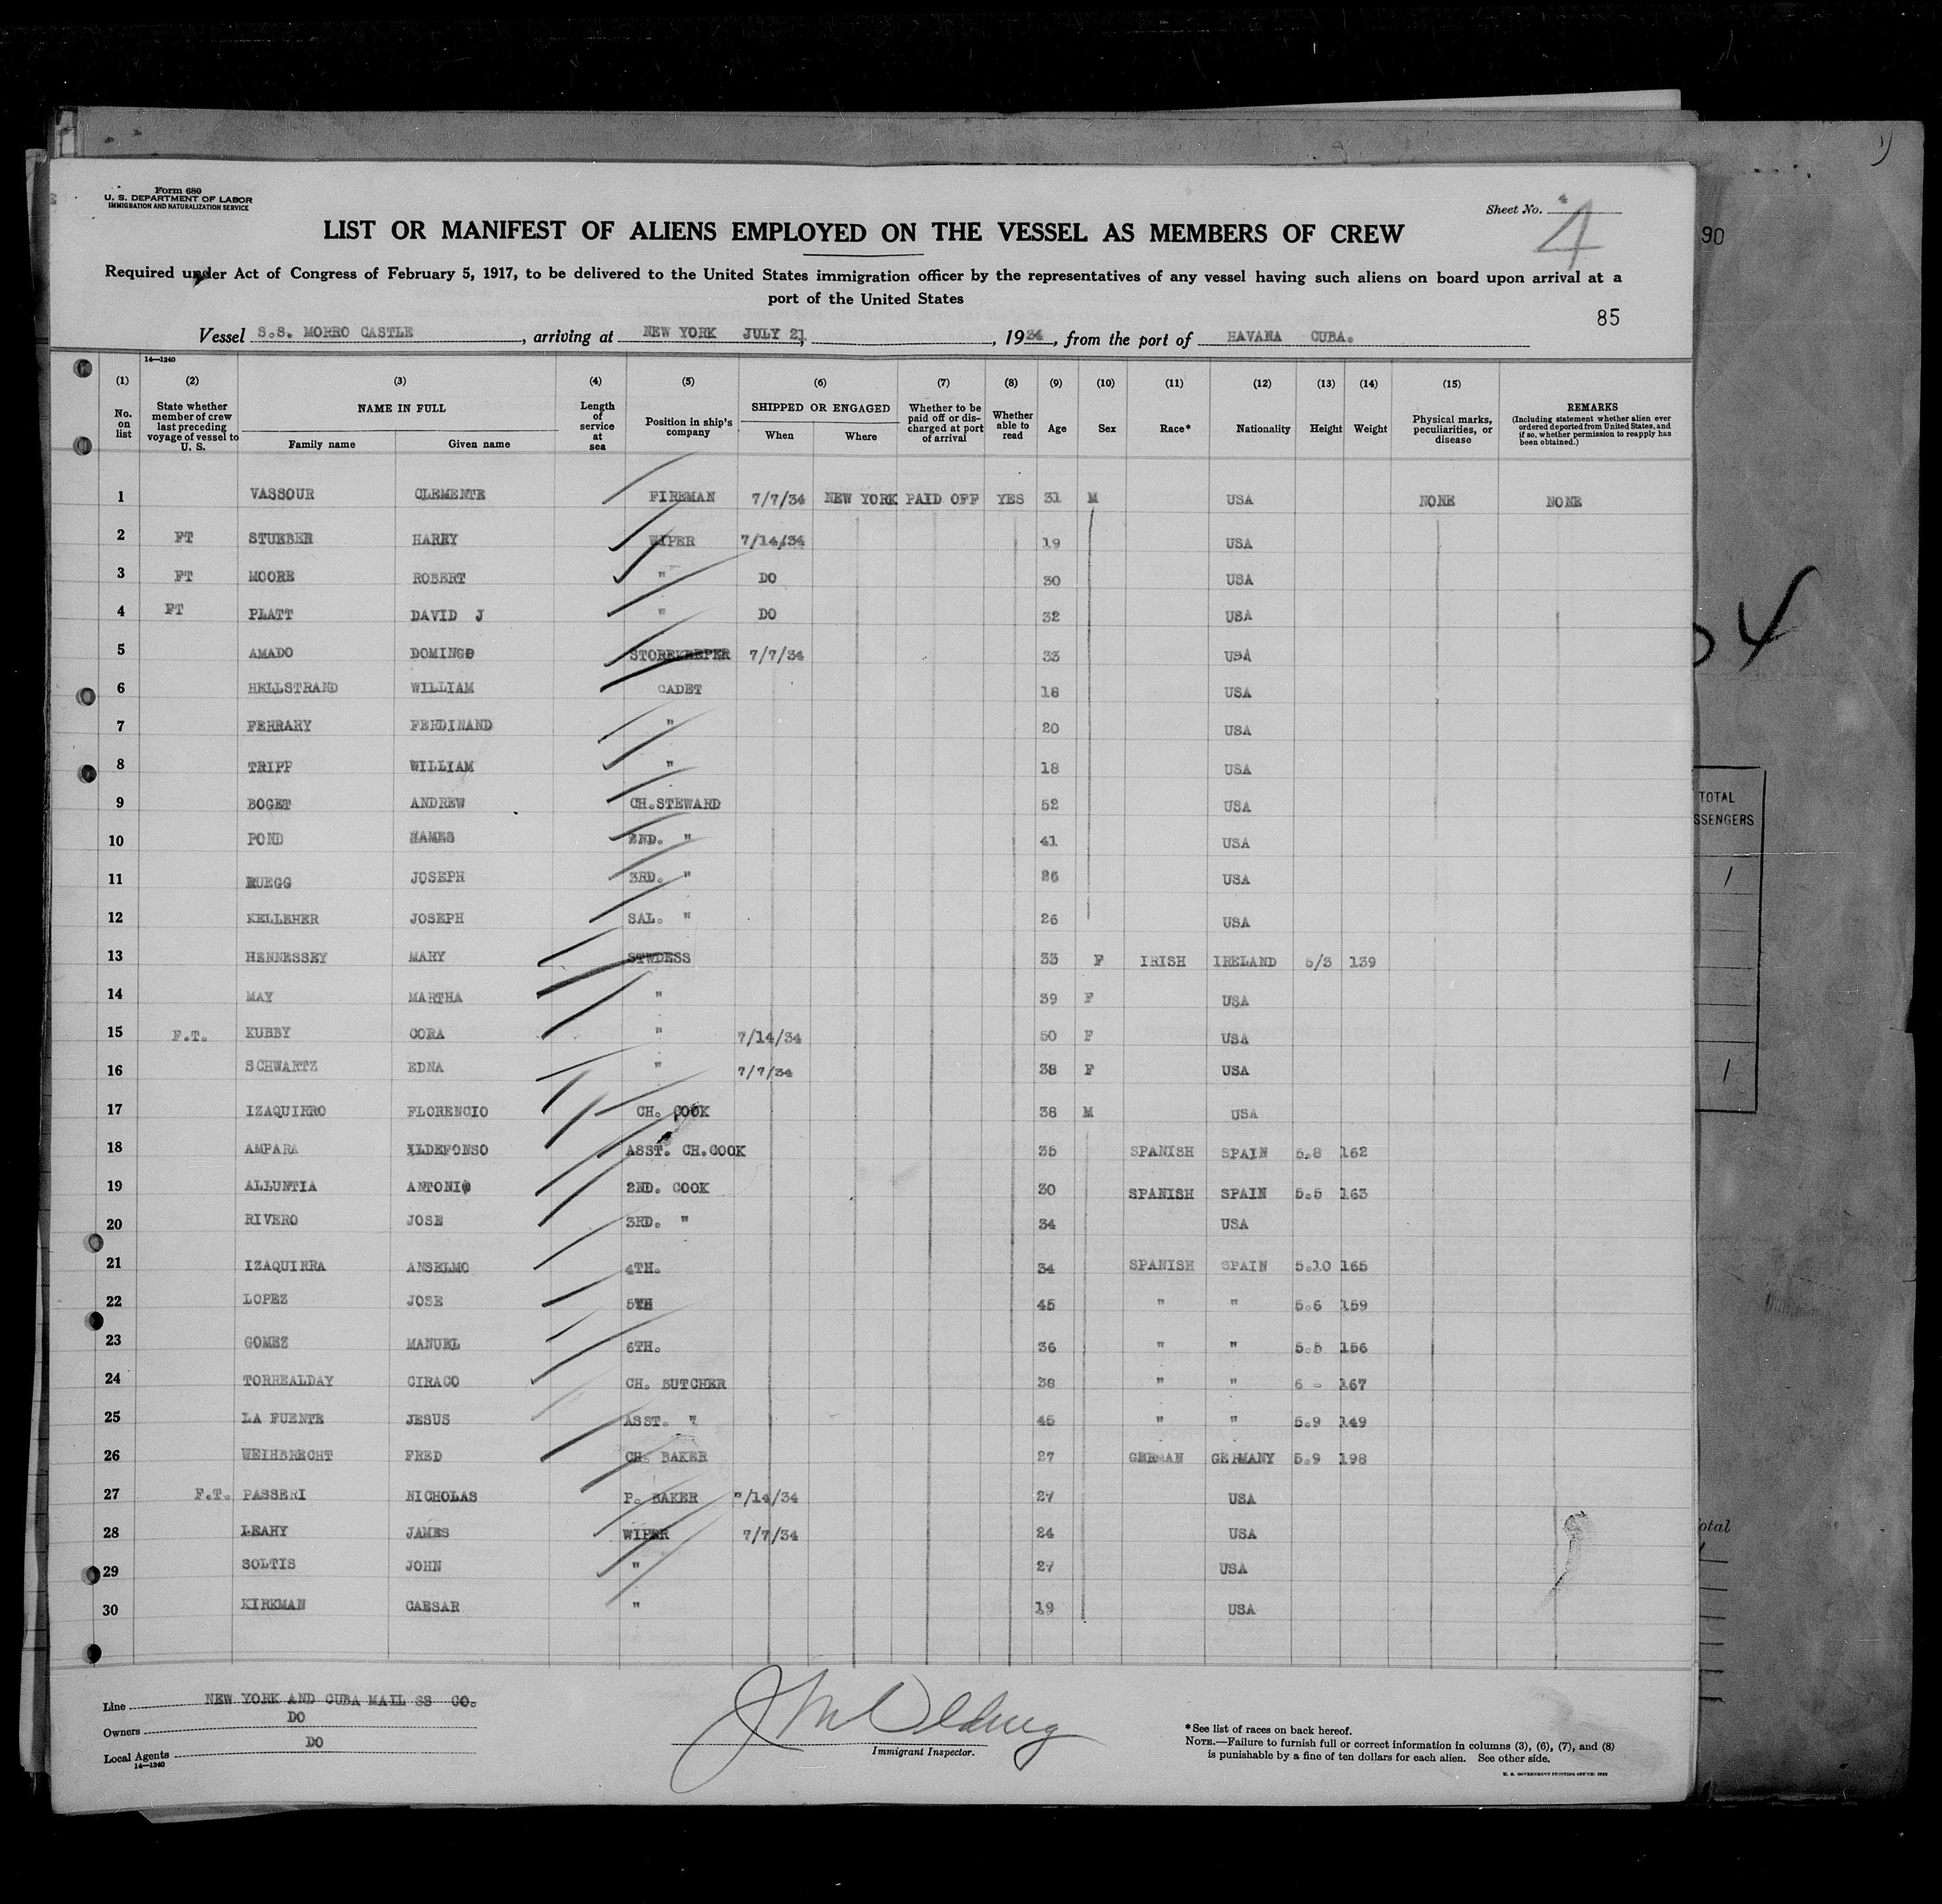 Form 680
U. S. DEPARTMENT OF LABOR
IMMIGRATION AND NATURALIZATION SERVICE
Sheet No. 4
4
LIST OR MANIFEST OF ALIENS EMPLOYED ON THE VESSEL AS MEMBERS OF CREW
90
Required under Act of Congress of February 5, 1917, to be delivered to the United States immigration officer by the representatives of any vessel having such aliens on board upon arrival at a
port of the United States
85
Vessel S.S. MORRO CASTLE, arriving at NEW YORK JULY 21, 1934, from the port of HAVANA CUBA.
14—1240
(1) (2) (3) (4) (5) (6) (7) (8) (9) (10) (11) (12) (13) (14) (15)
No. on list
State whether member of crew last preceding voyage of vessel to U. S.
NAME IN FULL
Family name Given name
Length of service at sea
Position in ship's company
SHIPPED OR ENGAGED
When Where
Whether to be paid off or discharged at port of arrival
Whether able to read
Age Sex Race* Nationality Height Weight
Physical marks, peculiarities, or disease
REMARKS
(Including statement whether alien ever ordered deported from United States, and if so, whether permission to reapply has been obtained.)
1 VASSOUR CLEMENTE FIREMAN 7/7/34 NEW YORK PAID OFF YES 31 M USA NONE NONE
2 FT STUEBER HARRY WIPER 7/14/34 19 USA
3 FT MOORE ROBERT " DO 30 USA
4 FT PLATT DAVID J " DO 32 USA
5 AMADO DOMINGO STOREKEEPER 7/7/34 33 USA
6 HELLSTRAND WILLIAM CADET 18 USA
7 FERRARY FERDINAND " 20 USA
8 TRIPP WILLIAM " 18 USA
9 BOGET ANDREW CH.STEWARD 52 USA
10 POND 2ND. " 41 USA
11 RUEGG JOSEPH 3RD. " 26 USA
12 KELLEHER JOSEPH SAL. " 26 USA
13 HENNESSEY MARY STWDESS 33 F IRISH IRELAND 5/3 139
14 MAY MARTHA " 39 F USA
15 F.T. KUBBY CORA " 7/14/34 50 F USA
16 SCHWARTZ EDNA " 7/7/34 38 F USA
17 IZAQUIRRO FLORENCIO CH. COOK 38 M USA
18 AMPARA ILDEFONSO ASST. CH.COOK 35 SPANISH SPAIN 5.8 162
19 ALLUNTIA ANTONIO 2ND. COOK 30 SPANISH SPAIN 5.5 163
20 RIVERO JOSE 3RD. " 34 USA
21 IZAQUIRRA ANSELMO 4TH. 34 SPANISH SPAIN 5.10 165
22 LOPEZ JOSE 5TH 45 " " 5.6 159
23 GOMEZ MANUEL 6TH. 36 " " 5.5 156
24 TORREALDAY CIRACO CH. BUTCHER 38 " " 6 - 167
25 LA FUENTE JESUS ASST. " 45 " " 5.9 149
26 WEIHBRECHT FRED CH. BAKER 27 GERMAN GERMANY 5.9 198
27 F.T. PASSERI NICHOLAS P. BAKER "/14/34 27 USA
28 LEAHY JAMES WIPER 7/7/34 24 USA
29 SOLTIS JOHN " 27 USA
30 KIRKMAN CAESAR " 19 USA
TOTAL
SSENGERS
Line NEW YORK AND CUBA MAIL SS CO.
Owners DO
Local Agents DO
14—1240
Immigrant Inspector.
*See list of races on back hereof.
NOTE.—Failure to furnish full or correct information in columns (3), (6), (7), and (8)
is punishable by a fine of ten dollars for each alien. See other side.